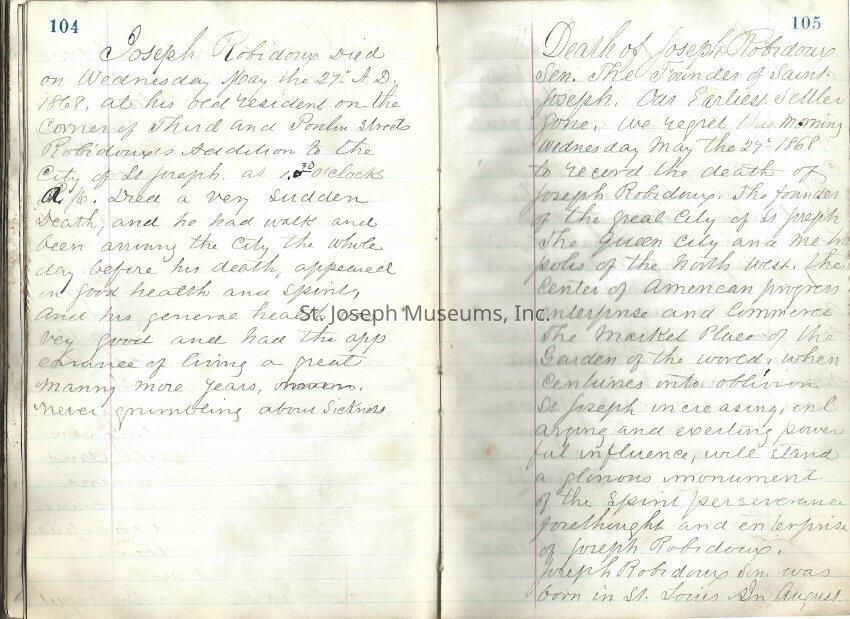 104
Joseph Robidoux Died
on Wednesday May the 27th A.D.
1868. at his old resident on the
Corner of Third and Poulin Streets
Robidoux's Addition to the
City of St Joseph. at o'clock
Died a very Sudden
Death, and he had walk and
been arround the City the whole
day before his death, appeared
in good health and Spirit,
And his general health
very good and had the app
earance of living a great
manny more years,
never grumbling about Sickness
St. Joseph Museums, Inc.
105
Death of Joseph Robidoux
Sen. The Founder of Saint
Joseph. Our Earliest Settler
gone. We regret this Morning
Wednesday May the 27th 1868
to record the death of
Joseph Robidoux. The founder
of the great City of St Joseph
The Queen City and metro
polis of the North West. the
Center of American progress
Enterprise and Commerce
The Market Place of the
Garden of the world. when
Centuries into oblivion
St Joseph increasing, enl
arging and exerting power
ful influence, will stand
a glorious monument
of the Spirit perseverance
forethought and enterprise
of Joseph Robidoux.
Joseph Robidoux Sen. was
born in St. Louis In August